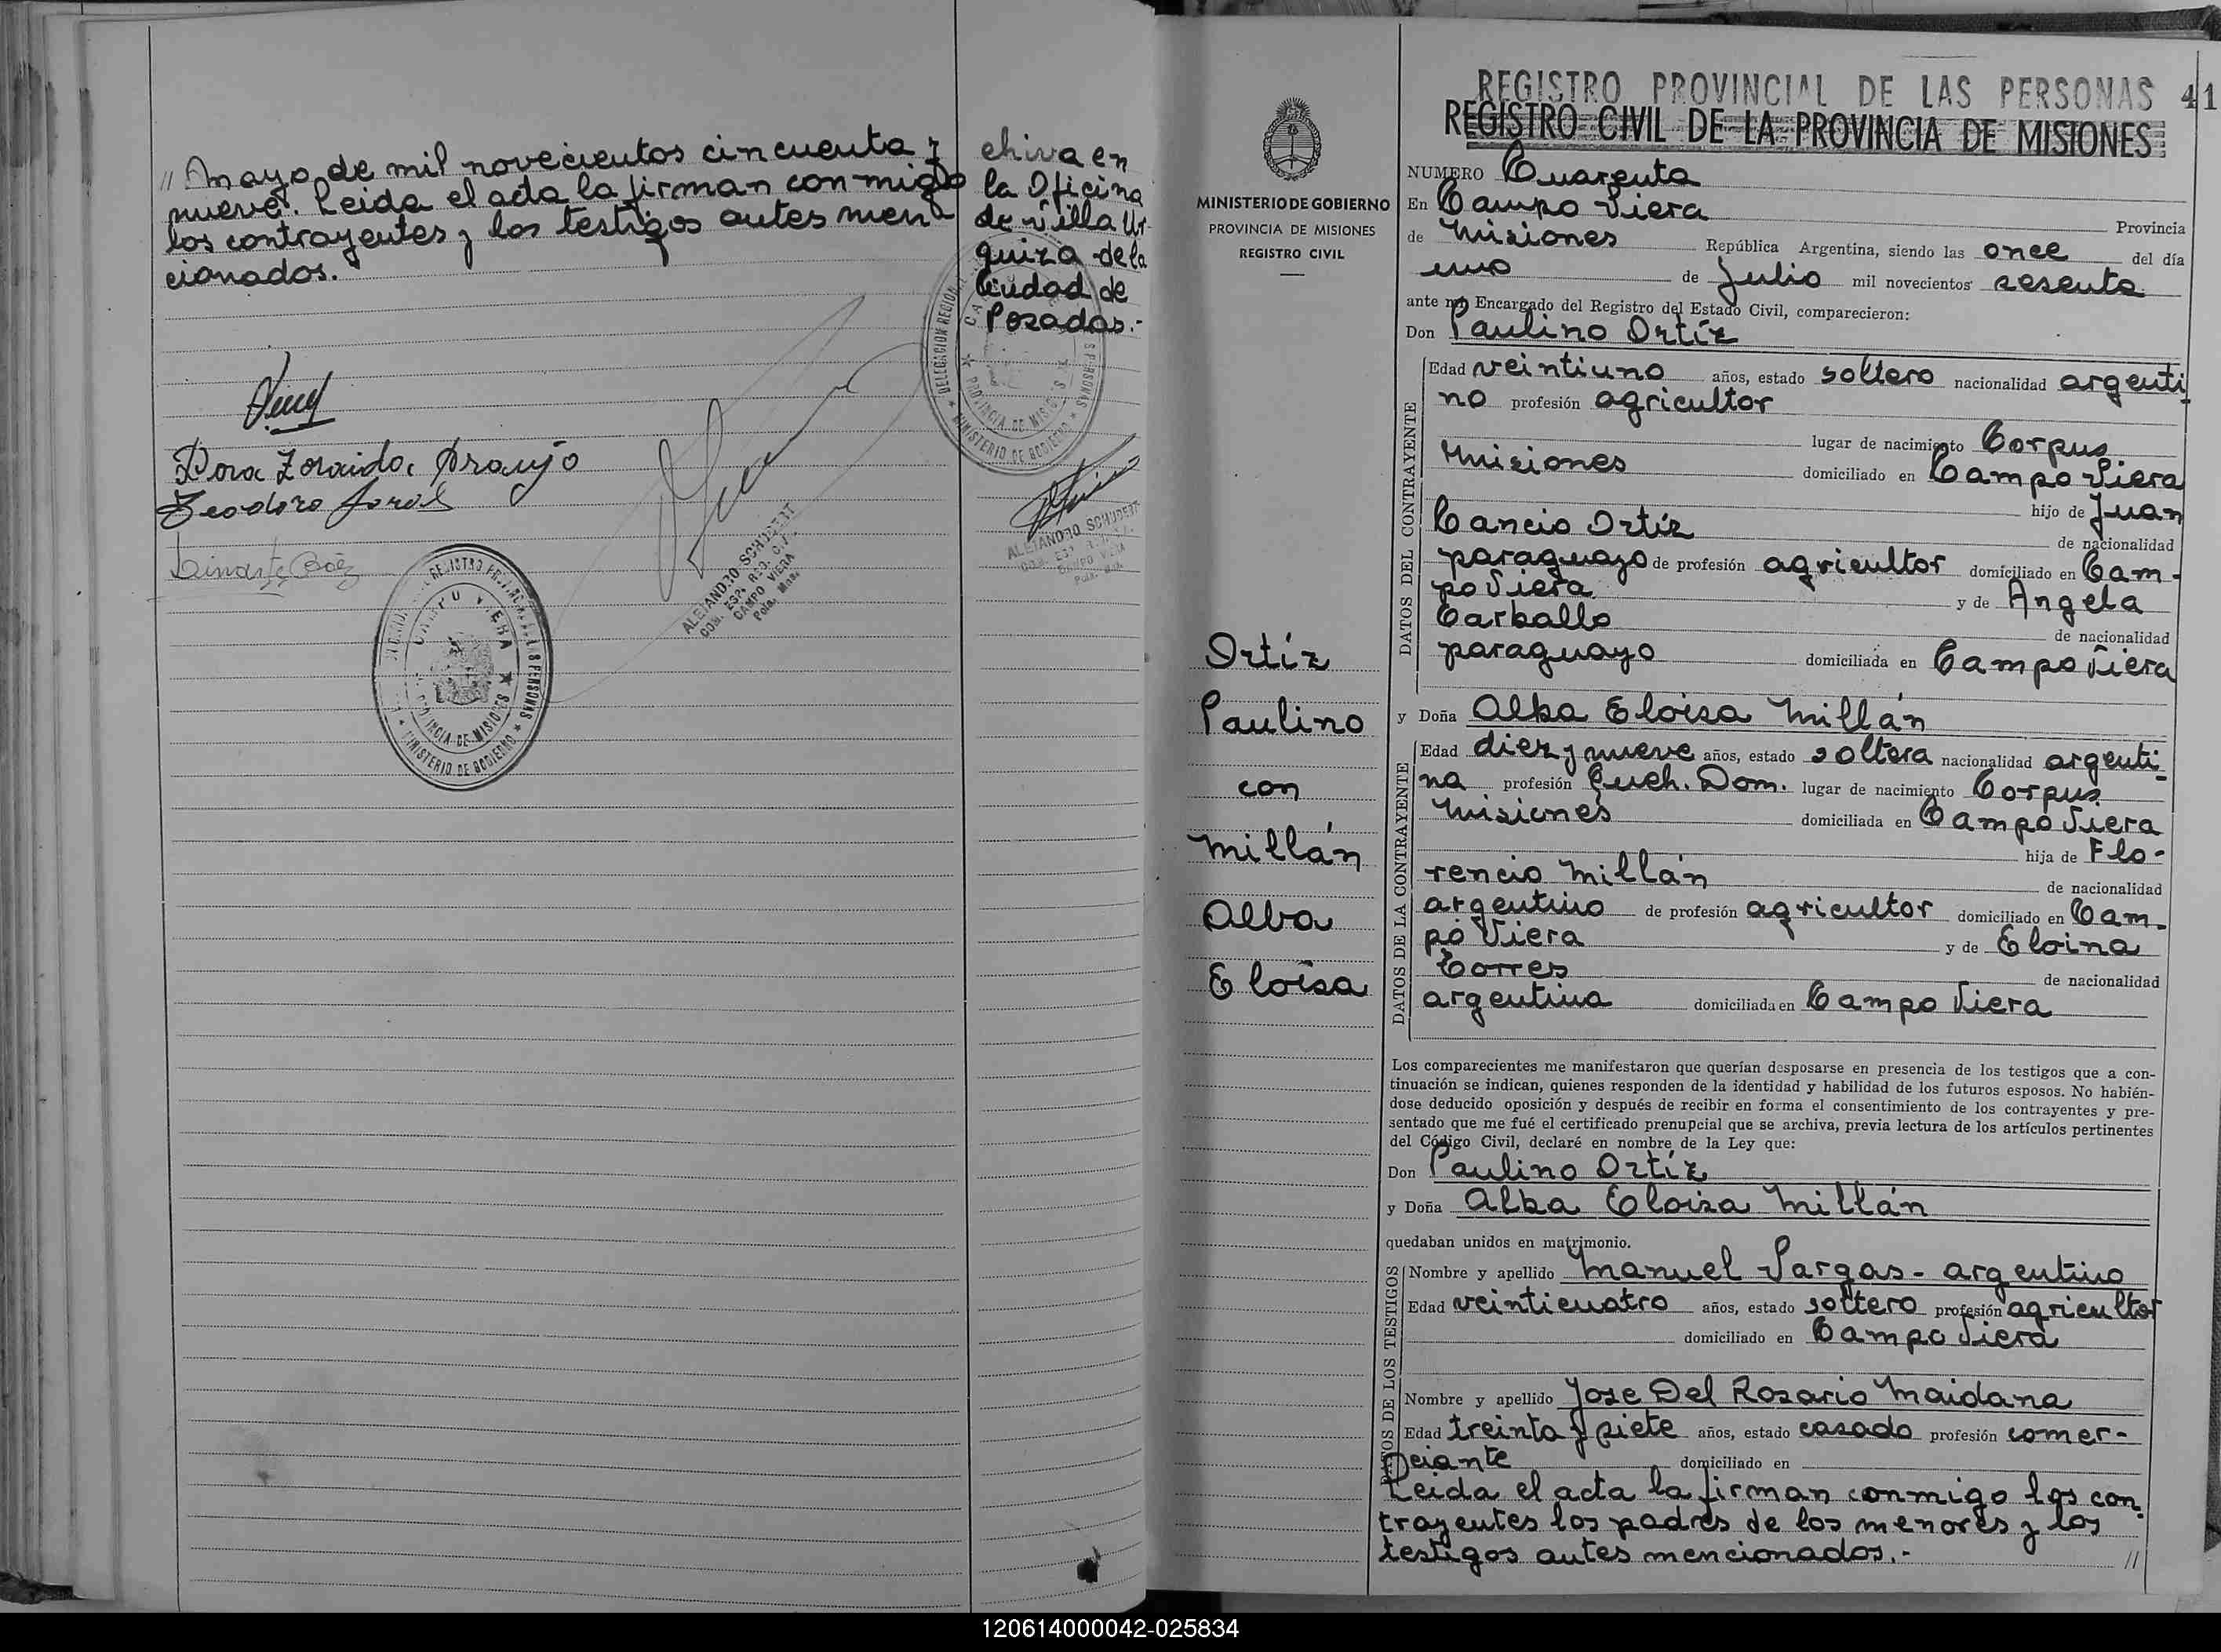 // Mayo de mil novecientos cincuenta y
nueve. Leida el acta la firman conmigo
los contrayentes y los testigos antes men
cionados.
chiva en
la Oficina
de Villa Ur-
quiza de la
Ciudad de
Posadas.-
Dora Zoraida Araujo
Teodoro
ALEJANDRO SCHUBERT
CAMPO VIERA
ALEJANDRO SCHUBERT
CAMPO VIERA
PROVINCIA DE MISIONES
MINISTERIO DE GOBIERNO
DELEGACION REGIONAL
PROVINCIA DE MISIONES
MINISTERIO DE GOBIERNO
REGISTRO PROVINCIAL DE LAS PERSONAS 41
REGISTRO CIVIL DE LA PROVINCIA DE MISIONES
MINISTERIO DE GOBIERNO
PROVINCIA DE MISIONES
REGISTRO CIVIL
Ortíz
Paulino
con
Millán
Alba
Eloisa
NUMERO Cuarenta
En Campo Viera Provincia
de Misiones República Argentina, siendo las once del día
uno de Julio mil novecientos sesenta
ante mí Encargado del Registro del Estado Civil, comparecieron:
Don Paulino Ortíz
DATOS DEL CONTRAYENTE
Edad veintiuno años, estado soltero nacionalidad argenti
no profesión agricultor
lugar de nacimiento Corpus
Misiones domiciliado en Campo Viera
hijo de Juan
Cancio Ortíz de nacionalidad
paraguayo de profesión agricultor domiciliado en Cam-
po Viera y de Angela
Carballo de nacionalidad
paraguayo domiciliada en Campo Viera
y Doña Alba Eloisa Millán
DATOS DE LA CONTRAYENTE
Edad diez y nueve años, estado soltera nacionalidad argenti-
na profesión Queh. Dom. lugar de nacimiento Corpus
Misiones domiciliada en Campo Viera
hija de Flo-
rencio Millán de nacionalidad
argentino de profesión agricultor domiciliado en Cam-
po Viera y de Eloina
Torres de nacionalidad
argentina domiciliada en Campo Viera
Los comparecientes me manifestaron que querían desposarse en presencia de los testigos que a con-
tinuación se indican, quienes responden de la identidad y habilidad de los futuros esposos. No habién-
dose deducido oposición y después de recibir en forma el consentimiento de los contrayentes y pre-
sentado que me fué el certificado prenupcial que se archiva, previa lectura de los artículos pertinentes
del Código Civil, declaré en nombre de la Ley que:
Don Paulino Ortíz
y Doña Alba Eloisa Millán
quedaban unidos en matrimonio.
DATOS DE LOS TESTIGOS
Nombre y apellido Manuel Vargas - argentino
Edad veinticuatro años, estado soltero profesión agricultor
domiciliado en Campo Viera
Nombre y apellido Jose Del Rosario Maidana
Edad treinta y siete años, estado casado profesión comer-
ciante domiciliado en
Leida el acta la firman conmigo los con-
trayentes los padres de los menores y los
testigos antes mencionados.- //
120614000042-025834